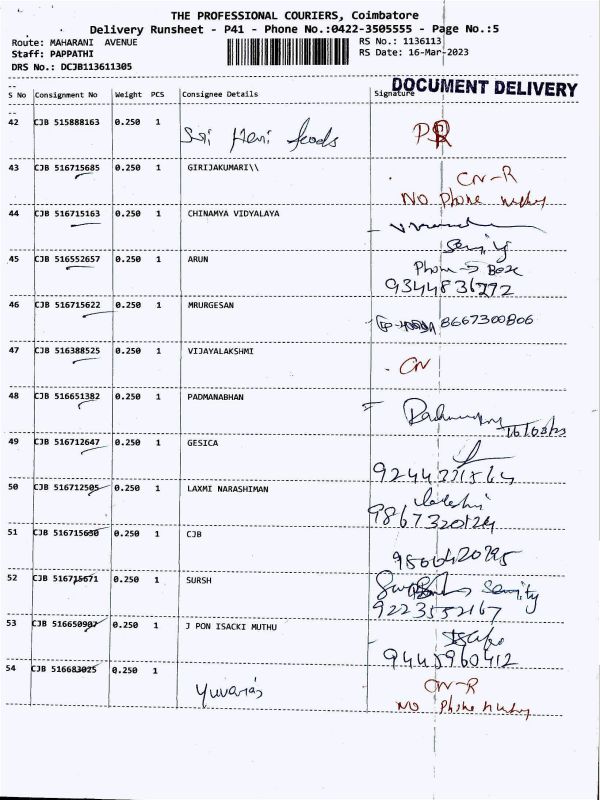 THE PROFESSIONAL COURIERS, Coimbatore
Delivery Runsheet - P41 - Phone No.:0422-3505555 - Page No.:5
Route: MAHARANI AVENUE RS No.: 1136113
Staff: PAPPATHI RS Date: 16-Mar-2023
DRS No.: DCJB113611305
DOCUMENT DELIVERY
S No Consignment No Weight PCS Consignee Details Signature
42 CJB 515888163 0.250 1 Sri Hari foods
43 CJB 516715685 0.250 1 GIRIJAKUMARI\\ CN-R
No Phone
44 CJB 516715163 0.250 1 CHINAMYA VIDYALAYA
45 CJB 516552657 0.250 1 ARUN Phone → Box
9344836772
46 CJB 516715622 0.250 1 MRURGESAN 8667300806
47 CJB 516388525 0.250 1 VIJAYALAKSHMI CN
48 CJB 516651382 0.250 1 PADMANABHAN
16/03/23
49 CJB 516712647 0.250 1 GESICA
50 CJB 516712505 0.250 1 LAXMI NARASHIMAN
51 CJB 516715630 0.250 1 CJB
52 CJB 516715671 0.250 1 SURSH
9223552167
53 CJB 516650907 0.250 1 J PON ISACKI MUTHU
9445960412
54 CJB 516683025 0.250 1 Yuvaraj CN-R
No Phone